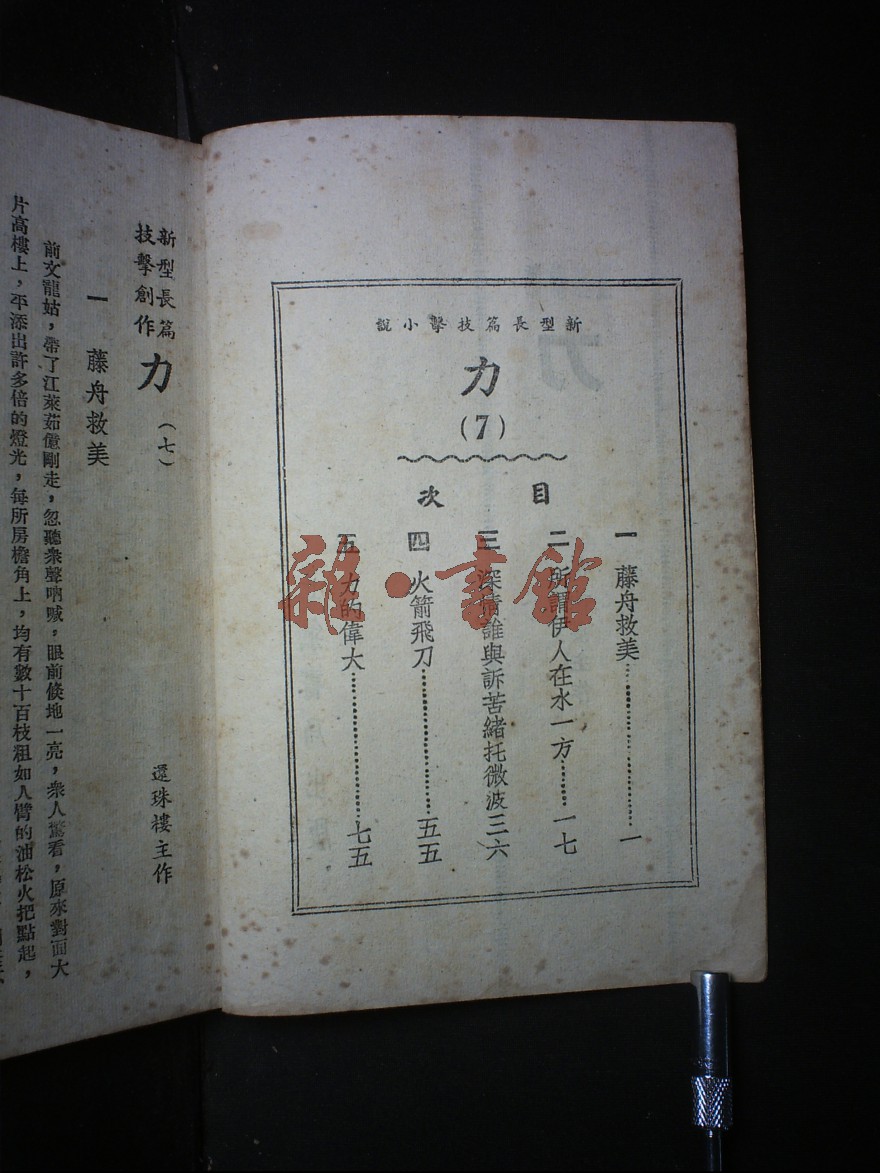 新型長篇技擊小說
力
(7)
目次
一 藤舟救美……一
二 所謂伊人在水一方……一七
三 深情誰與訴苦緒托微波三六
四 火箭飛刀……五五
五 力的偉大……七五
雜·書館
新型長篇
技擊創作
力
(七)
還珠樓主作
一 藤舟救美
前文龍姑，帶了江萊茹億剛走，忽聽衆聲吶喊，眼前倏地一亮，衆人驚看，原來對面大
片高樓上，平添出許多倍的燈光，每所房檐角上，均有數十百枝粗如人臂的油松火把點起，